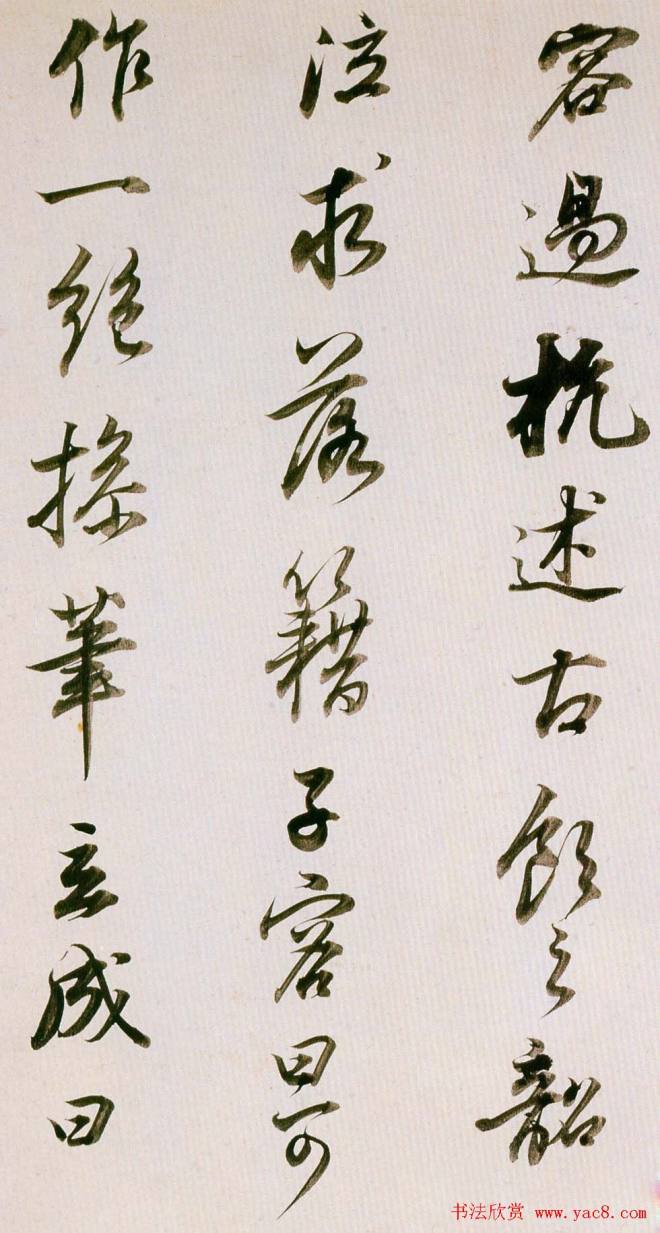 容過杭述古飲之韶
泣求落籍子容曰可
作一絕援筆立成曰
书法欣赏 www.yac8.com